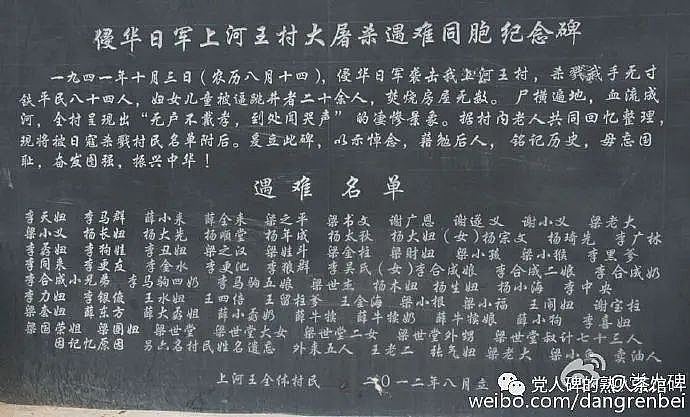 侵华日军上河王村大屠杀遇难同胞纪念碑
一九四一年十月三日(农历八月十四),侵华日军袭击我上河王村,杀戮我手无寸
铁平民八十四人,妇女儿童被逼跳井者二十余人,焚烧房屋无数。尸横遍地,血流成
河,全村呈现出“无户不戴孝,到处闻哭声”的凄惨景象。据村内老人共同回忆整理,
现将被日寇杀戮村民名单附后。爰立此碑,以示悼念,藉勉后人,铭记历史,毋忘国
耻,奋发图强,振兴中华!
遇难名单
李天妞 李马群 薛小来 薛全来 梁之平 梁书文 谢广恩 谢遂义 谢小义 梁老大
梁小义 杨长妞 杨大先 杨顺堂 杨年成 杨太秋 杨大妞 (女)杨宗文 杨琦先 李广林
李荔妞 李狗娃 李丑妞 梁之汉 梁姓斗 梁金柱 梁财妞 梁小孩 梁小猴 李里爹
李同来 李更友 李金水 李更池 李狼群 李吴氏(女)李合成娘 李合成二娘 李合成奶
李合成小兄弟 李马驹四奶 李马驹五娘 梁世杰 杨木妞 杨生妞 杨小海 李中央
李力妞 李银俊 王水妞 王四倍 王留柱爹 王金海 梁小根 梁小福 王闹妞 谢宝柱
梁套妞 薛东方 薛大函姐 薛小函奶 薛牛犊 薛牛犊奶 薛牛犊娘 薛小狗 李喜妞
梁国荣姐 梁圈妞 梁世堂 梁世堂大女 梁世堂二女 梁世堂外甥 梁世堂叔计七十三人
因记忆原因 另六名村民姓名遗忘 外来五人 王老二 张气妞 梁老大 梁小 卖油人
上河王全体村民 二〇一二年八月立
党人碑的熟人茶馆
weibo.com/dangrenbei